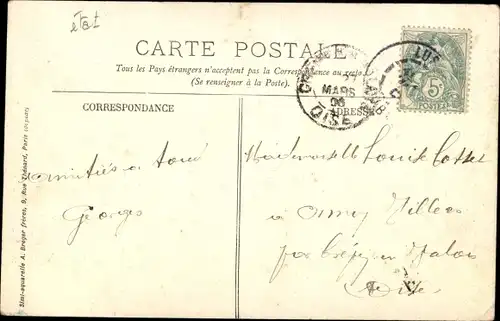 état
CARTE POSTALE
Tous les Pays étrangers n'acceptent pas la Correspondance au recto
(Se renseigner à la Poste).
CORRESPONDANCE
ADRESSE
MARS
OISE
5c
POSTES
amitiés a tous
Georges
Mademoiselle Louise Cosset
a Ormoy Villers
par Crépy en Valois
Oise
Simi-aquarelle A. Breger frères, 9, Rue Thénard, Paris